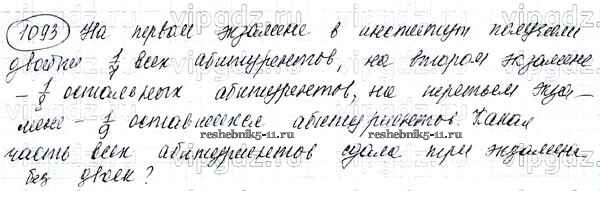 1093 На первом экзамене в институт получили
двойки 1/9 всех абитуриентов, на втором экзамене
– 1/9 остальных абитуриентов, на третьем экза-
мене – 1/9 оставшихся абитуриентов. Какая
reshebnik5-11.ru
часть всех абитуриентов сдала три экзамена
без двоек?